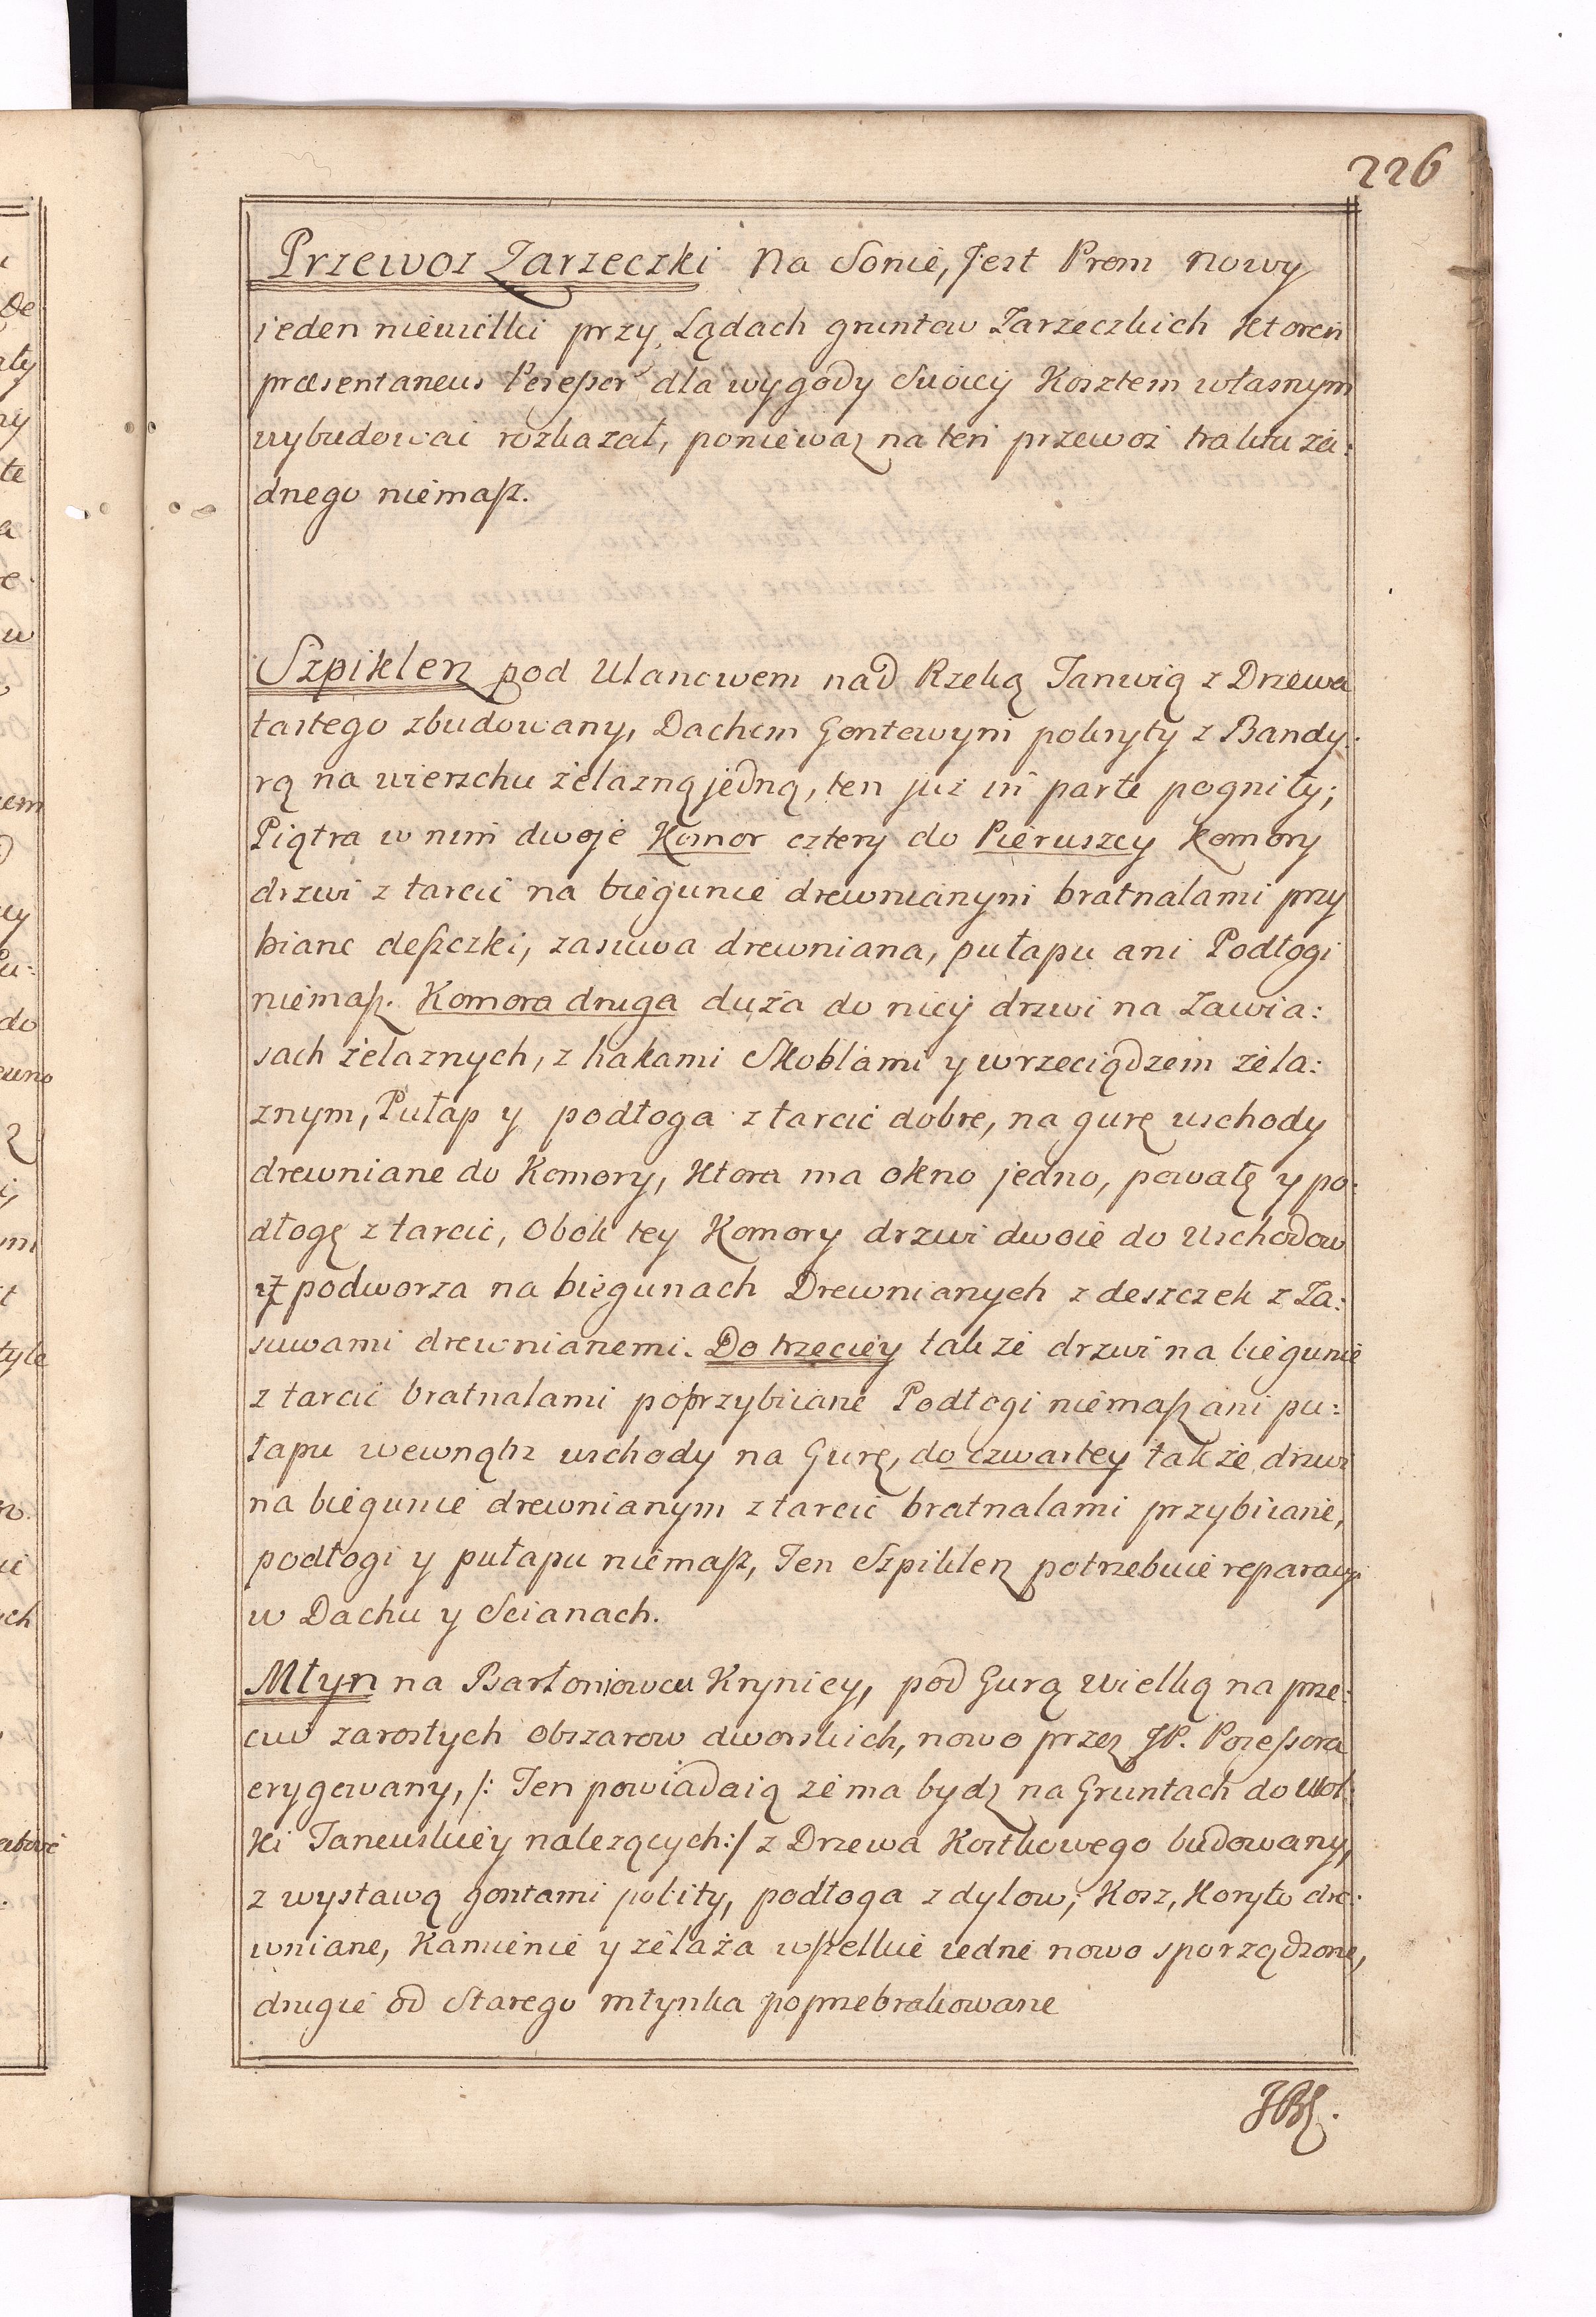 226
Przewoz Zarzeczki Na Sonie, Jest Prom Nowy
jeden niewielki przy Lądach gruntow Zarzeczkich Ktoren
præsentaneus Posseſsor dla wygody Swoiey Kosztem własnym
wybudowac rozkazał, poniewaz na ten przewoz traktu za:
dnego niemaſz.
Szpiklerz pod Ulanowem nad Rzeką Tanwią z Drzewa
tartego zbudowany, Dachem Gontowym pokryty z Bandy:
rą na wierzchu żelazną jedną, ten juz in parte pogniły;
Piątra w nim dwoje Komor cztery do Pierwszey Komory
drzwi z tarcic na biegunie drewnianym bratnalami przy
biane deſzczki, zasuwa drewniana, pułapu ani Podłogi
niemaſz. Komora druga duża do niey drzwi na Zawia:
sach żelaznych, z hakami Skoblami y wrzeciądzem żela:
znym, Pułap y podłoga z tarcic dobre, na gurę wschody
drewniane do Komory, Ktora ma okno jedno, powałę y po:
dłogę z tarcic, Obok tey Komory drzwi dwoie do Wschodow
z podworza na biegunach Drewnianych z deszczek z Za:
suwami drewnianemi. Do trzeciey takze drzwi na biegunie
z tarcic bratnalami poprzybiiane Podłogi niemaſz ani pu:
łapu wewnątrz wschody na Gurę, do czwartey także drzwi
na biegunie drewnianym z tarcic bratnalami przybiiane,
podłogi y pułapu niemaſz, Ten Szpiklerz potrzebuie reparacyi
w Dachu y Scianach.
Młyn na Bartoniowcu Krynicy, pod Gurą Wielką na prze:
ciw zarosłych Obszarow dworskich, nowo przez JP. Posseſsora
erygowany, /: Ten powiadaią ze ma bydz na Gruntach do Wol:
ki Taneuskiey nalezących:/ z Drzewa Kostkowego budowany,
z wystawą gontami pobity, podłoga z dylow, Kosz, Koryto dre:
wniane, Kamienie y żelaza wſzelkie iedne nowo sporządzone,
drugie od Starego młynka poprzebrakowane